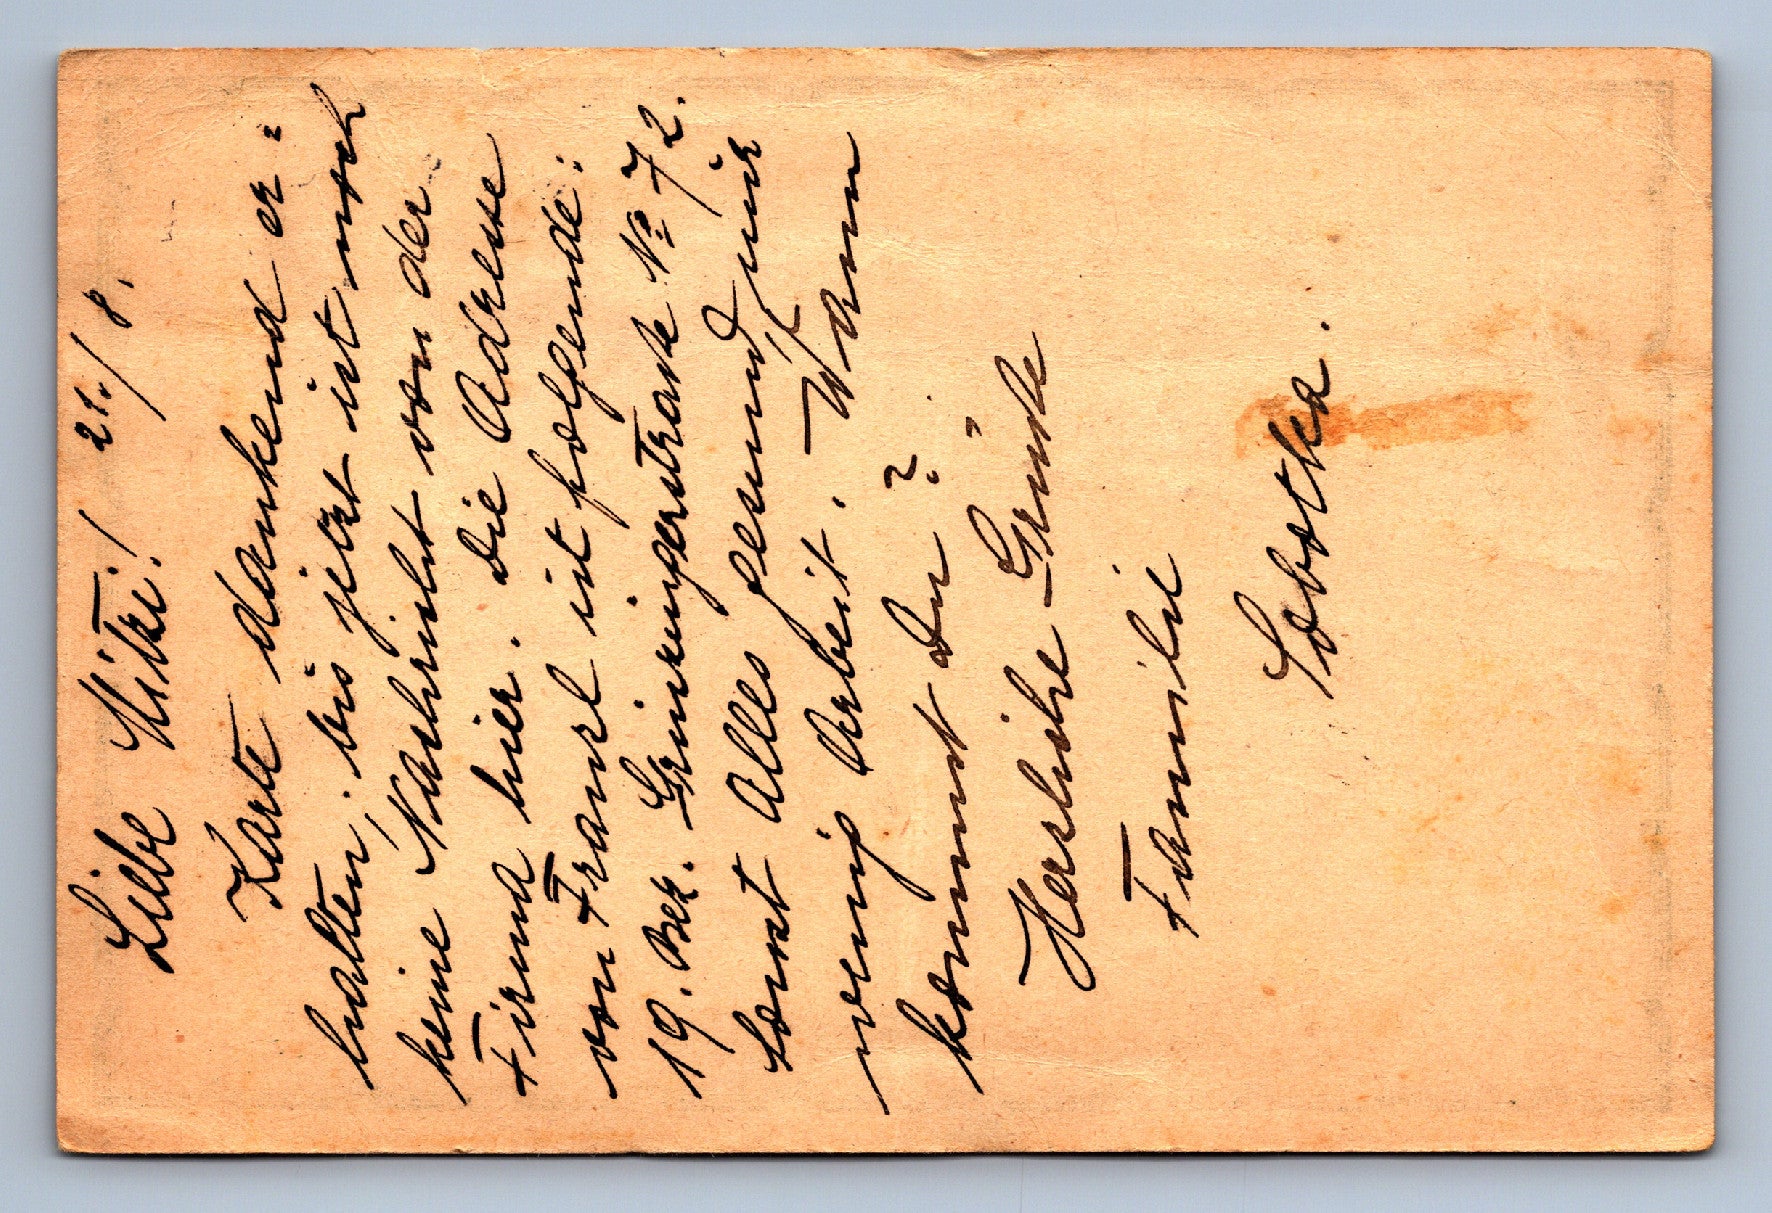 Liebe Mitzi! 21./8.
Karte dankend er=
halten, bis jetzt ist noch
keine Nachricht von der
Firma hier. Die Adresse
von Franzl ist folgende:
19. Bez. Grinzingerstraße No 72.
Sonst Alles gesund, nur
wenig Arbeit. Wann
kommst Du?
Herzliche Grüße
Familie
Sobotka.